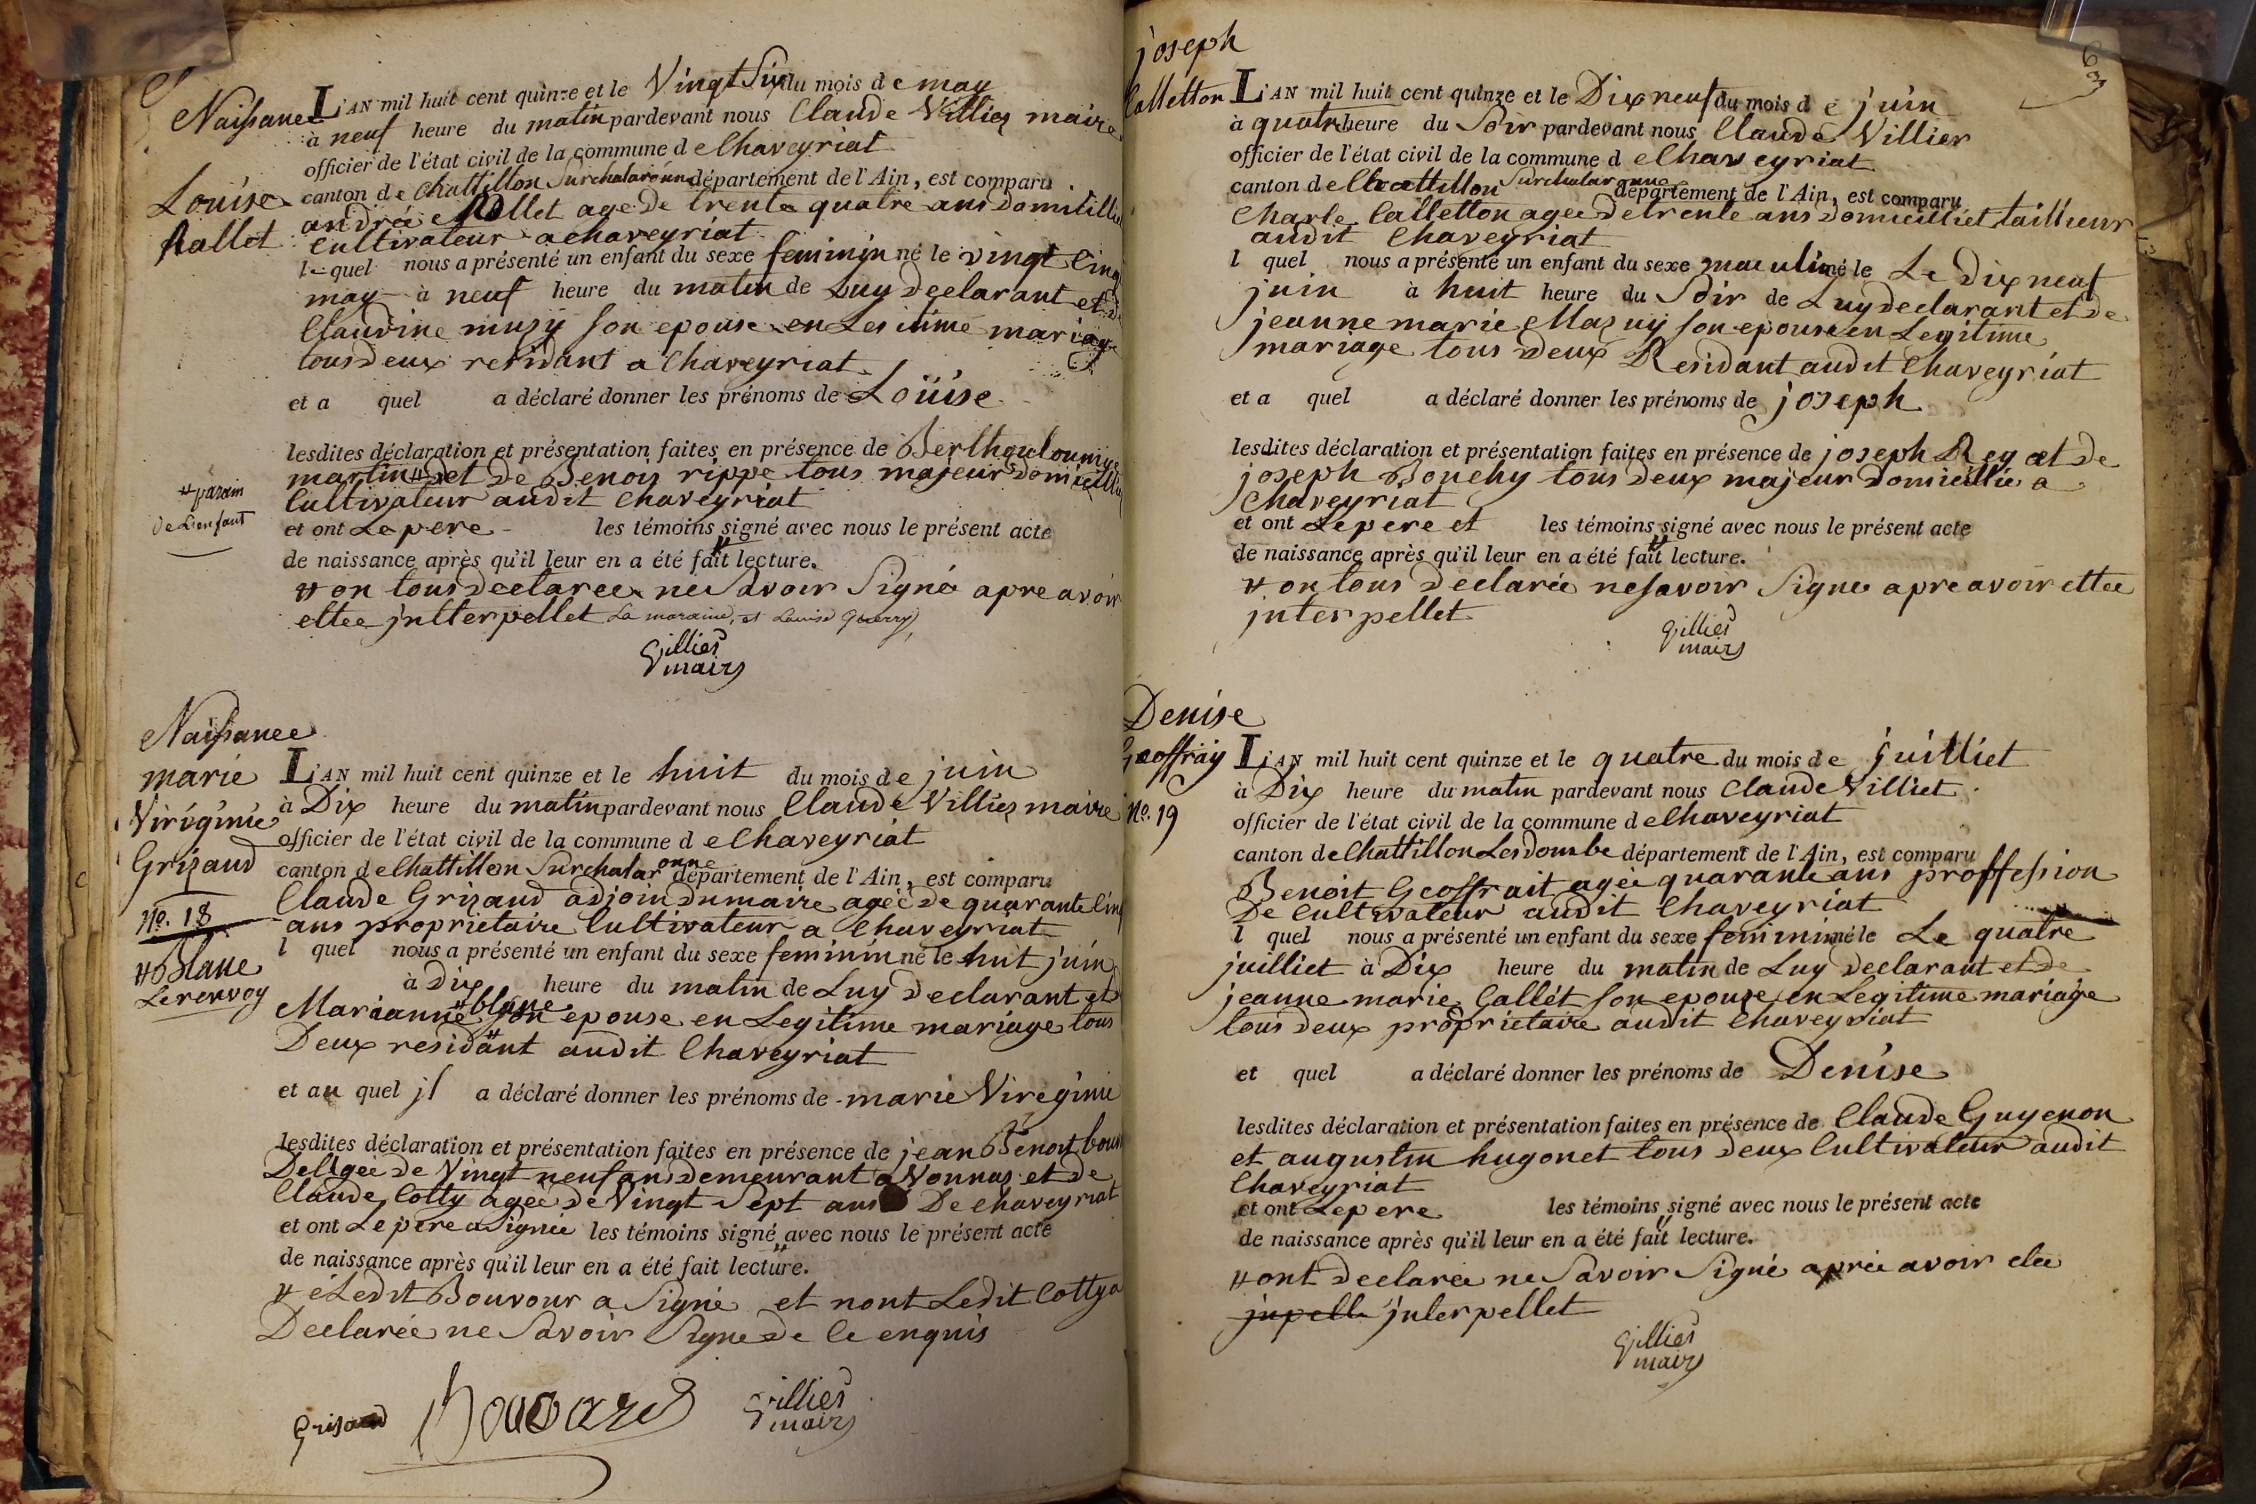 Naissance
Louise
Rallet
L'AN mil huit cent quinze et le Vingt Six du mois de may
à neuf heure du matin pardevant nous Claude Villier maire
officier de l'état civil de la commune de Chaveyriat
canton de Chattillon Surchalaronne département de l'Ain, est comparu
andrée Rallet age de trente quatre ans domicillie
Cultivateur a chaveyriat
l quel nous a présenté un enfant du sexe feminin né le vingt Cinq
may à neuf heure du matin de Luy declarant et de
Claudine muzÿ son epouse en Lesitime mariage
tous deux residant a Chaveyriat
et a quel a déclaré donner les prénoms de Loüise
lesdites déclaration et présentation faites en présence de Berthouloumye
martin # et de Benois rippe tous majeur domicillie
Cultivateur audit Chaveyriat
# parain
de L'enfant
et ont Le pere les témoins signé avec nous le présent acte
de naissance après qu'il leur en a été fait lecture.
# on tous declarée ne Savoir Signé apre avoir
ettee jntterpellet La maraine, et Louise Guerry,
Villier
maire
Naissance
marie
Viréginie
Grizaud
No. 18
# Blanc
Le renvoy
L'AN mil huit cent quinze et le huit du mois de juin
à Dix heure du matin pardevant nous Claude Villier maire
officier de l'état civil de la commune de Chaveyriat
canton de Chattillon Surchalaronne département de l'Ain, est comparu
Claude Grizaud adjoin du maire ageé de quarante Cinq
ans proprietaire Cultivateur a Chaveyriat
l quel nous a présenté un enfant du sexe feminin né le huit juin
à dix heure du matin de Luy Declarant et
Marianne # blanc son epouse en Legitime mariage tous
Deux residant audit Chaveyriat
et au quel jl a déclaré donner les prénoms de marie Viregenie
lesdites déclaration et présentation faites en présence de jean Benoit
agee de Vingt neuf ans demeurant a Vonnas et de
Claude Cotty agée de Vingt Sept ans De Chaveyriat
et ont Le pere a Signée les témoins signé avec nous le présent acte
de naissance après qu'il leur en a été fait lecture.
# é Ledit Bouvour a Signé et nont Ledit Cotty a
Declarée ne Savoir Signe de Ce enquis
Grisaud
Villier
maire
joseph
Calletton
L'AN mil huit cent quinze et le Dix neuf du mois de juin
à quatre heure du Soir pardevant nous Claude Villier
officier de l'état civil de la commune de Chaveyriat
canton de Chattillon Surchalaronne département de l'Ain, est comparu
Charle Calletton agee de trente ans domicilliet tailleur
audit Chaveyriat
l quel nous a présenté un enfant du sexe maculin né le Le Dix neuf
juin à huit heure du Soir de Luy declarant et de
jeanne marie Mazuy son epouse en Legitime
mariage tous deux Residant audit Chaveyriat
et a quel a déclaré donner les prénoms de joseph
lesdites déclaration et présentation faites en présence de joseph Rey et de
joseph Bouchy tous deux majeur domicillie a
Chaveyriat
et ont Le pere et les témoins signé avec nous le présent acte
de naissance après qu'il leur en a été fait lecture.
# on tous declarée ne savoir Signe apre avoir ettee
jnterpellet
Villier
maire
Denise
Geoffray
No. 19
L'AN mil huit cent quinze et le quatre du mois de juilliet
à Dix heure du matin pardevant nous Claude Villiet
officier de l'état civil de la commune de Chaveyriat
canton de Chattillon Les dombe département de l'Ain, est comparu
Benoit Geoffrait agée quarante ans proffession
De Cultivateur audit Chaveyriat
l quel nous a présenté un enfant du sexe feminin né le Le quatre
juilliet à Dix heure du matin de Luy declarant et de
jeanne marie Callét son epouse en Legitime mariage
tous deux proprietaire audit Chaveyriat
et quel a déclaré donner les prénoms de Denise
lesdites déclaration et présentation faites en présence de Claude Guyenon
et augustin hugonet tous deux Cultivateur audit
Chaveyriat
et ont Le pere les témoins signé avec nous le présent acte
de naissance après qu'il leur en a été fait lecture.
# ont declarée ne Savoir Signé aprée avoir etee
jupell jnterpellet
Villier
maire